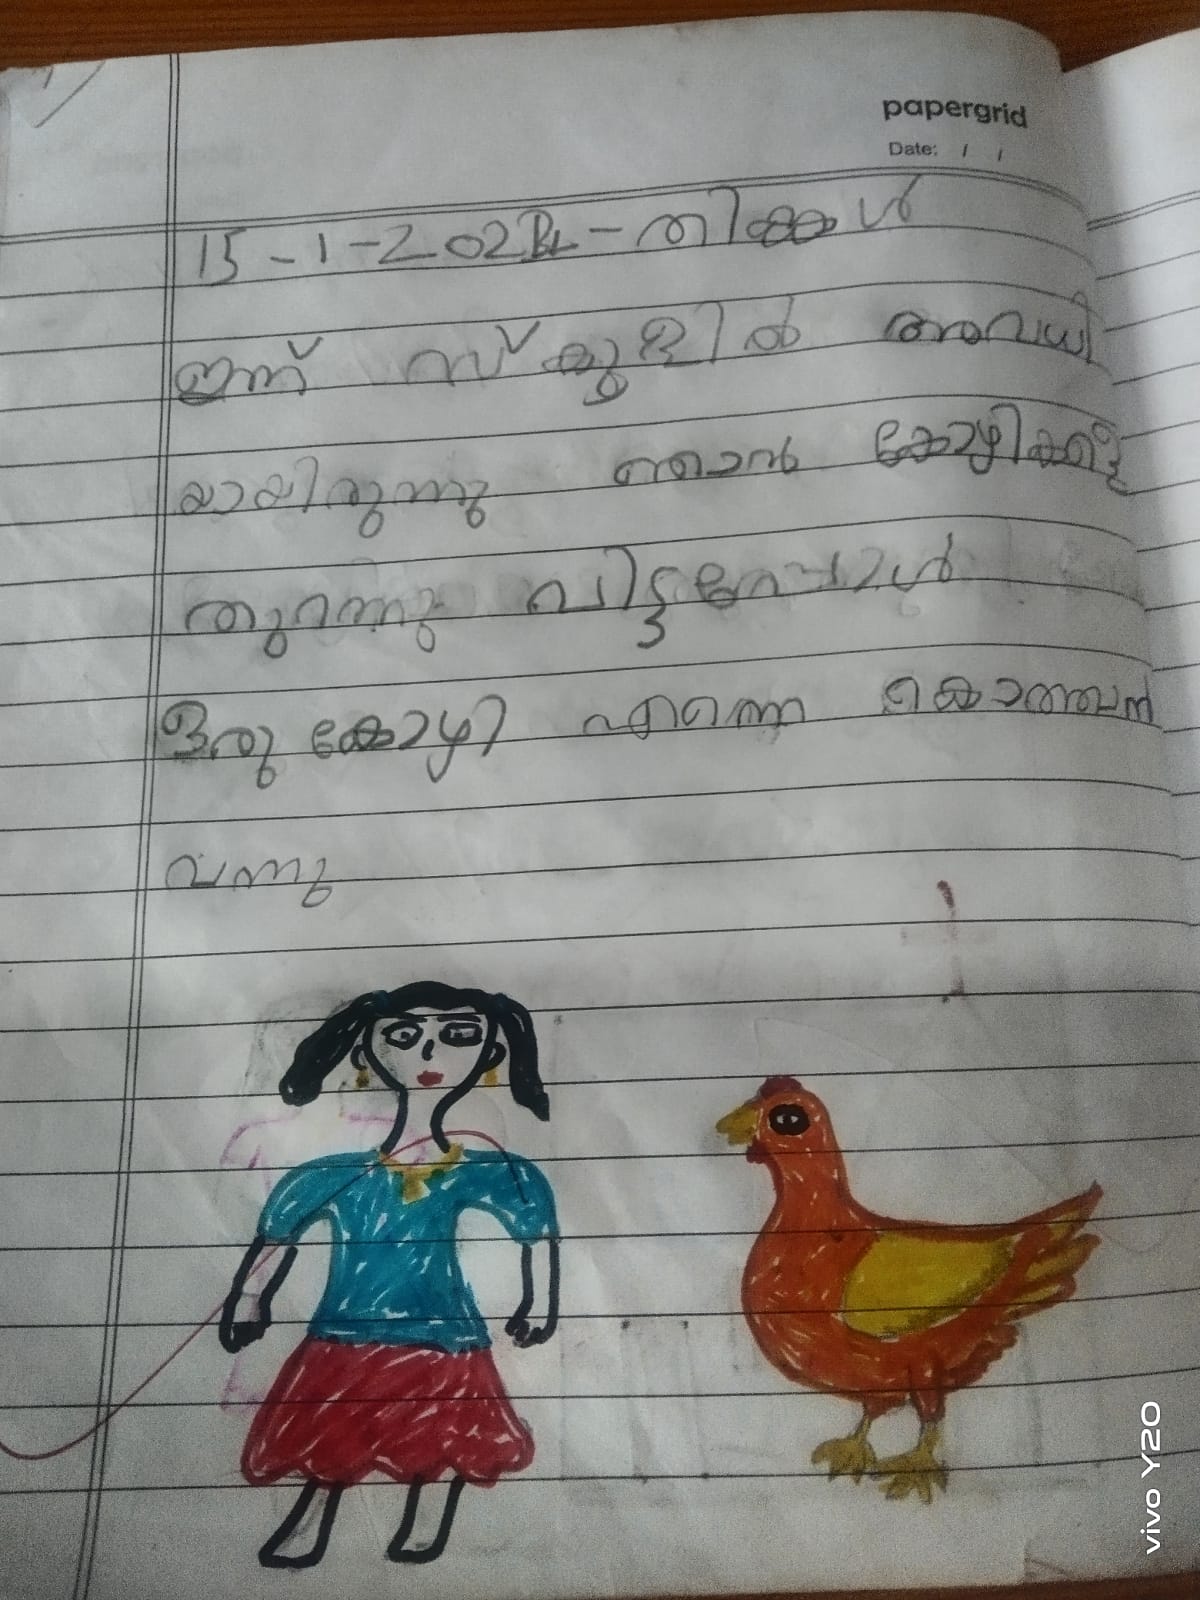 papergrid
Date: / /
15-1-2024 - തിങ്കൾ
ഇന്ന് സ്കൂളിൽ അവധി
യായിരുന്നു ഞാൻ കോഴികളെ
തുറന്നു വിട്ടപ്പോൾ
ഒരു കോഴി എന്നെ കൊത്താൻ
വന്നു
vivo Y20